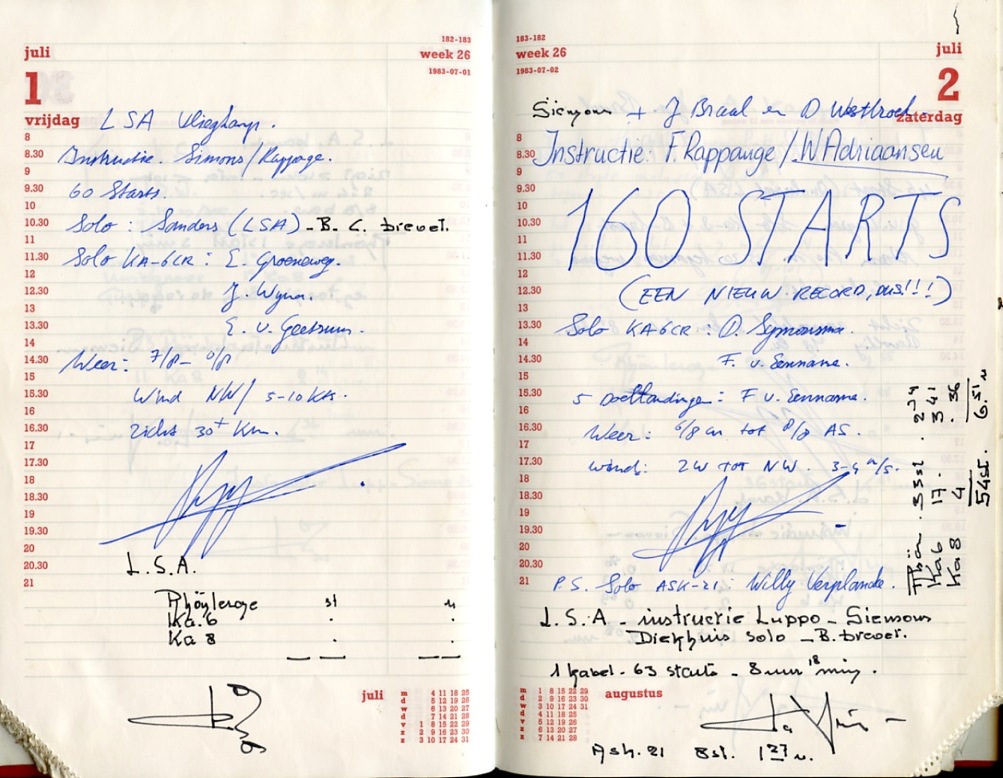 182-183
juli
week 26
1983-07-01
1
vrijdag
LSA Vliegkamp.
8
8.30 Instructie. Simons/Rappage.
9
9.30 60 Starts.
10
10.30 Solo : Sanders (LSA) - B. C. brevet.
11
11.30 Solo KA-6CR : E. Groeneweg.
12
12.30 J. Wyna.
13
13.30 E. v. Geetsum.
14
14.30 Weer: 7/8 - 0/8
15
15.30 Wind NW/ 5-10 Kts.
16
16.30 Zicht 30+ Km.
17
17.30
18
18.30
19
19.30
20
20.30 L.S.A.
21
Rhönlerge st u
Ka.6 . .
Ka 8 . .
juli
m 4 11 18 25
d 5 12 19 26
w 6 13 20 27
d 7 14 21 28
v 1 8 15 22 29
z 2 9 16 23 30
z 3 10 17 24 31
183-182
week 26
1983-07-02
juli
2
zaterdag
Siemons + J Braal en D Westbroek
8
8.30 Instructie: F. Rappange / W Adriaansen
9
9.30
10
10.30 160 STARTS
11
11.30
12
12.30 (EEN NIEUW RECORD, DUS!!!)
13
13.30 Solo KA6CR : D. Symonsma.
14
14.30 F. v. Sennama.
15
15.30 5 Doellandingen : F v. Sennama.
16
16.30 Weer: 6/8 cu tot 8/8 AS.
17
17.30 Wind: ZW tot NW. 3-4 m/s.
18
18.30
19
19.30
20
20.30
21 P.S. Solo ASK-21 : Willy Verplancke.
Rhön. 33st 2 34
Ka6 17 . 3 41
Ka8 4 . 36
54st. 6.51 u
L.S.A - instructie Luppo - Siemons
Diekhuis solo - B. brevet.
1 kabel - 63 starts - 8 uur 18 min.
augustus
m 1 8 15 22 29
d 2 9 16 23 30
w 3 10 17 24 31
d 4 11 18 25
v 5 12 19 26
z 6 13 20 27
z 7 14 21 28
Ask. 21 8st. 1 27 u.